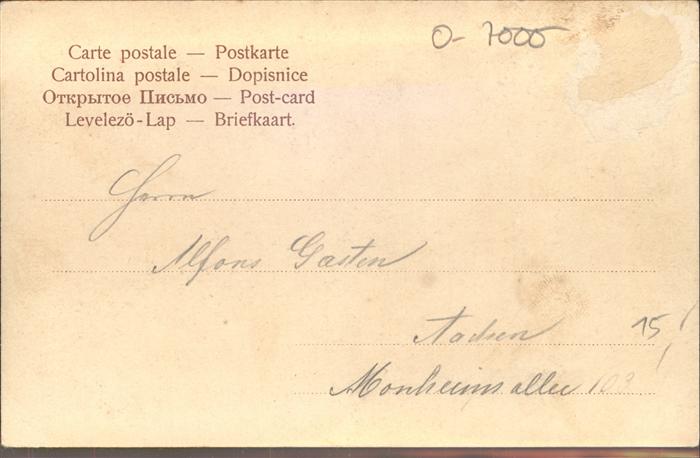 O- 7000
Carte postale — Postkarte
Cartolina postale — Dopisnice
Открытое Письмо — Post-card
Levelező-Lap — Briefkaart.
Herrn
Alfons Gasten
Aachen
15,
Monheimsallee